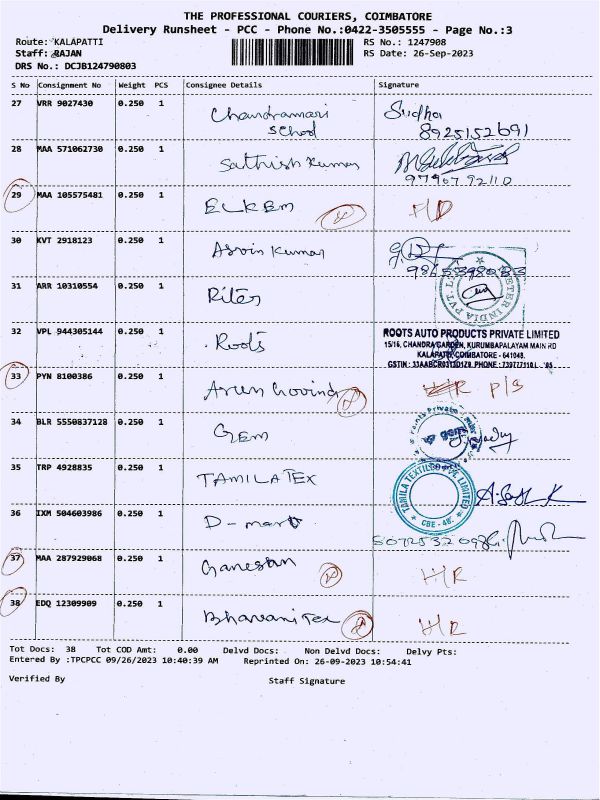 THE PROFESSIONAL COURIERS, COIMBATORE
Delivery Runsheet - PCC - Phone No.:0422-3505555 - Page No.:3
Route: KALAPATTI
RS No.: 1247908
Staff: RAJAN
RS Date: 26-Sep-2023
DRS No.: DCJB124790803
S No Consignment No Weight PCS Consignee Details Signature
27 VRR 9027430 0.250 1 Chandramari School Sudha 8925152691
28 MAA 571062730 0.250 1 Sathish Kumar 97907 92110
29 MAA 105575481 0.250 1 ELKEM
30 KVT 2918123 0.250 1 Asvin Kumar
31 ARR 10310554 0.250 1 Riter
32 VPL 944305144 0.250 1 Roots
ROOTS AUTO PRODUCTS PRIVATE LIMITED
15/16, CHANDRA GARDEN, KURUMBAPALAYAM MAIN RD
KALAPATTI, COIMBATORE - 641048.
33 PYN 8100386 0.250 1 Arun Govind P/S
34 BLR 5550837128 0.250 1 GEM
35 TRP 4928835 0.250 1 TAMILA TEX
TAMILA TEXTILES PVT. LIMITED
CBE - 48.
36 IXM 504603986 0.250 1 D-mart
37 MAA 287929068 0.250 1 Ganesan H/R
38 EDQ 12309909 0.250 1 Bhavani Tex H/R
Tot Docs: 38 Tot COD Amt: 0.00 Delvd Docs: Non Delvd Docs: Delvy Pts:
Entered By :TPCPCC 09/26/2023 10:40:39 AM Reprinted On: 26-09-2023 10:54:41
Verified By Staff Signature